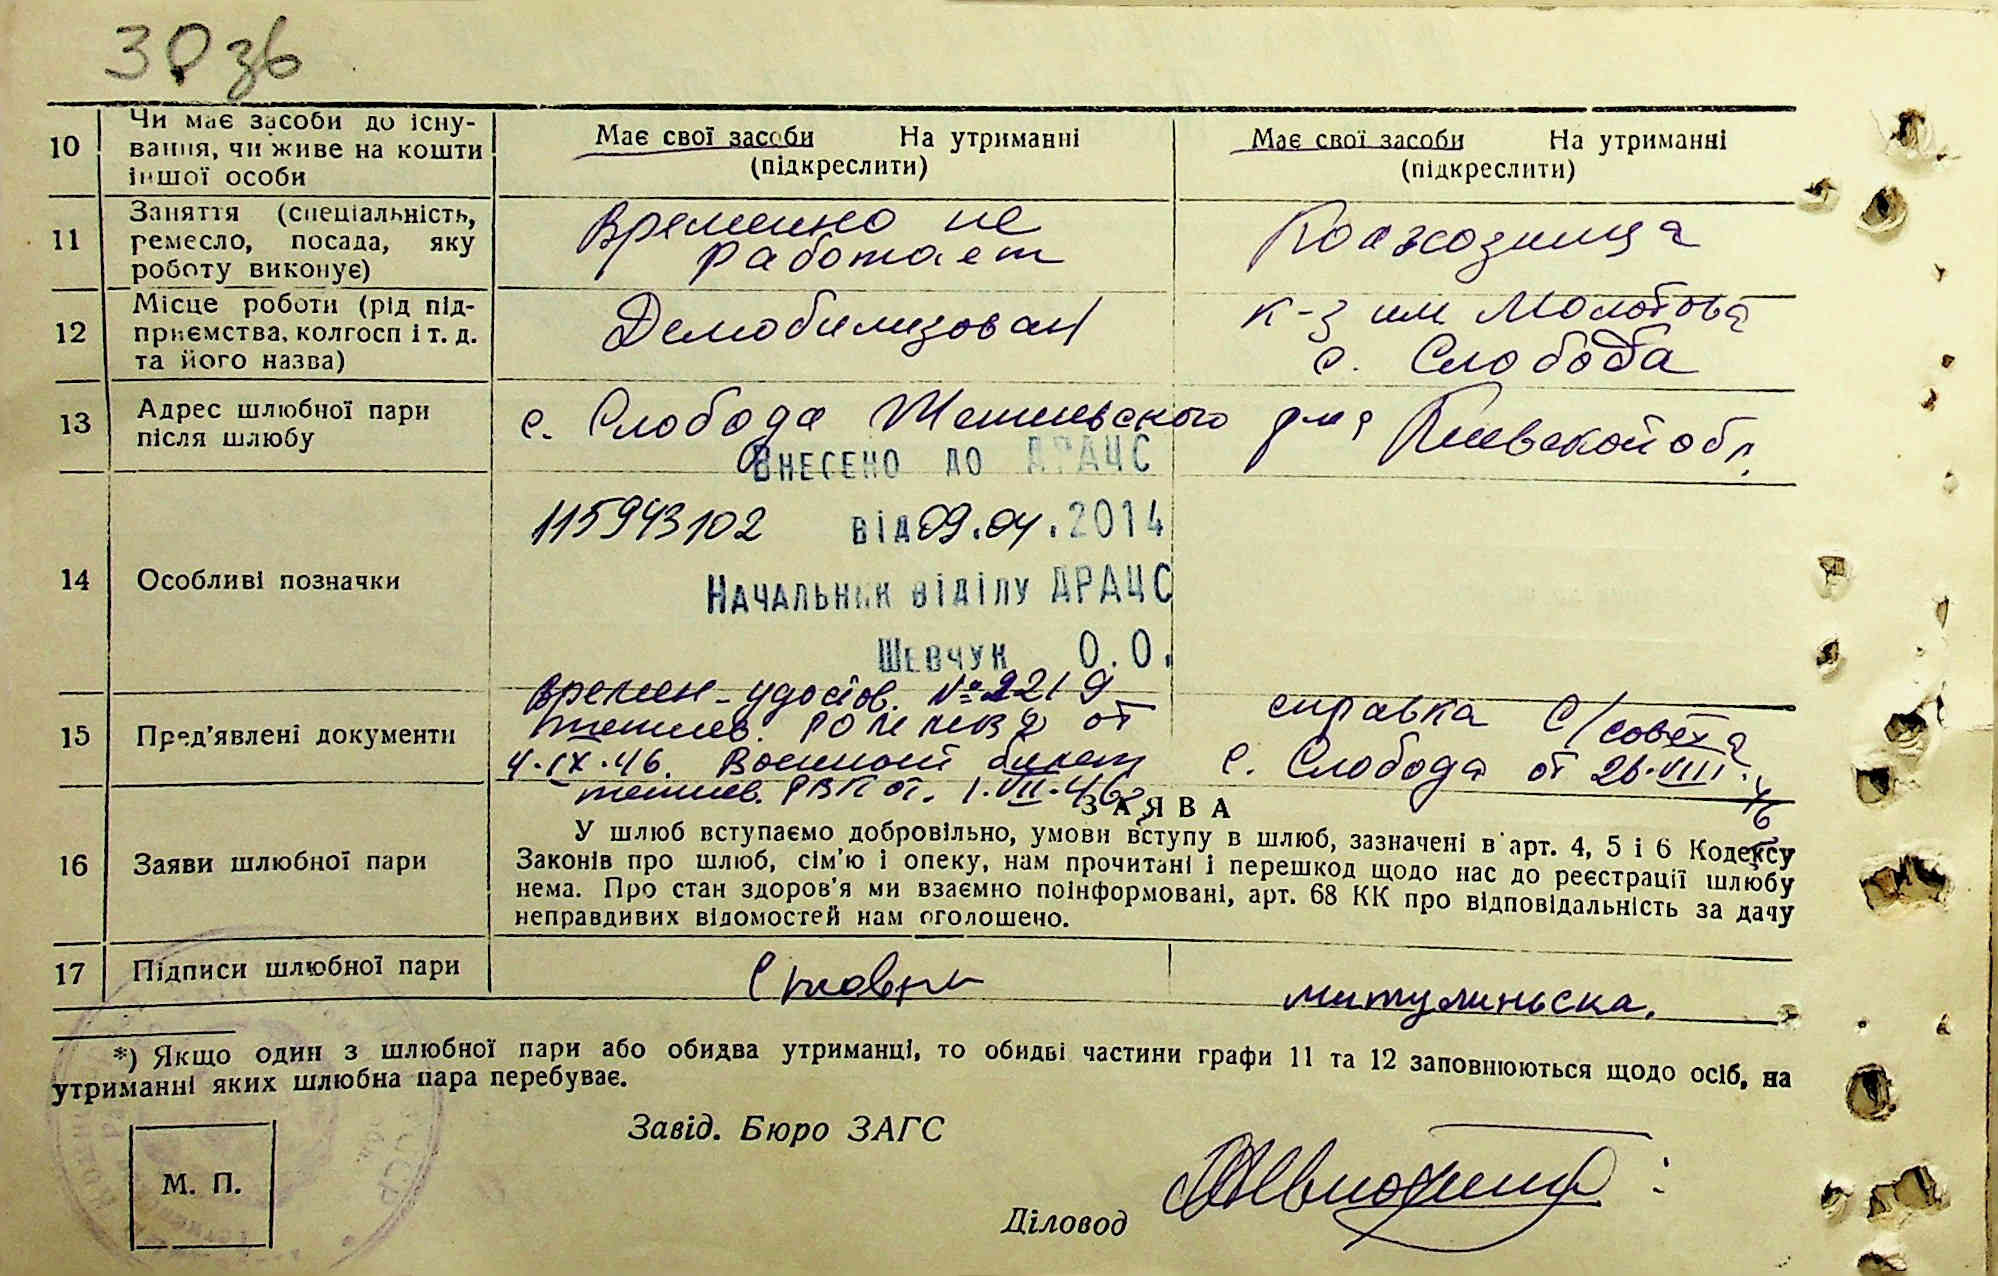 30 зв
10 Чи має засоби до існу-
вання, чи живе на кошти
іншої особи
Має свої засоби На утриманні
(підкреслити)
Має свої засоби На утриманні
(підкреслити)
11 Заняття (спеціальність,
ремесло, посада, яку
роботу виконує)
Временно не
работает
Колхозница
12 Місце роботи (рід під-
приємства, колгосп і т. д.
та його назва)
Демобилизован
к-з им Молотова
с. Слобода
13 Адрес шлюбної пари
після шлюбу
с. Слобода р-на Киевской обл.
Внесено до ДРАЦС
115943102 від 09.04.2014
Начальник відділу ДРАЦС
Шевчук О.О.
14 Особливі позначки
15 Пред'явлені документи
Времен-удостов. № 2219
от
4.IX.46. Военный билет
РВК от. 1.VII.46
справка С/совета
с. Слобода от 26.VIII.46
16 Заяви шлюбної пари
ЗАЯВА
У шлюб вступаємо добровільно, умови вступу в шлюб, зазначені в арт. 4, 5 і 6 Кодексу
Законів про шлюб, сім'ю і опеку, нам прочитані і перешкод щодо нас до реєстрації шлюбу
нема. Про стан здоров'я ми взаємно поінформовані, арт. 68 КК про відповідальність за дачу
неправдивих відомостей нам оголошено.
17 Підписи шлюбної пари
митулиньска.
*) Якщо один з шлюбної пари або обидва утриманці, то обидві частини графи 11 та 12 заповнюються щодо осіб, на
утриманні яких шлюбна пара перебуває.
Завід. Бюро ЗАГС
М. П.
Діловод